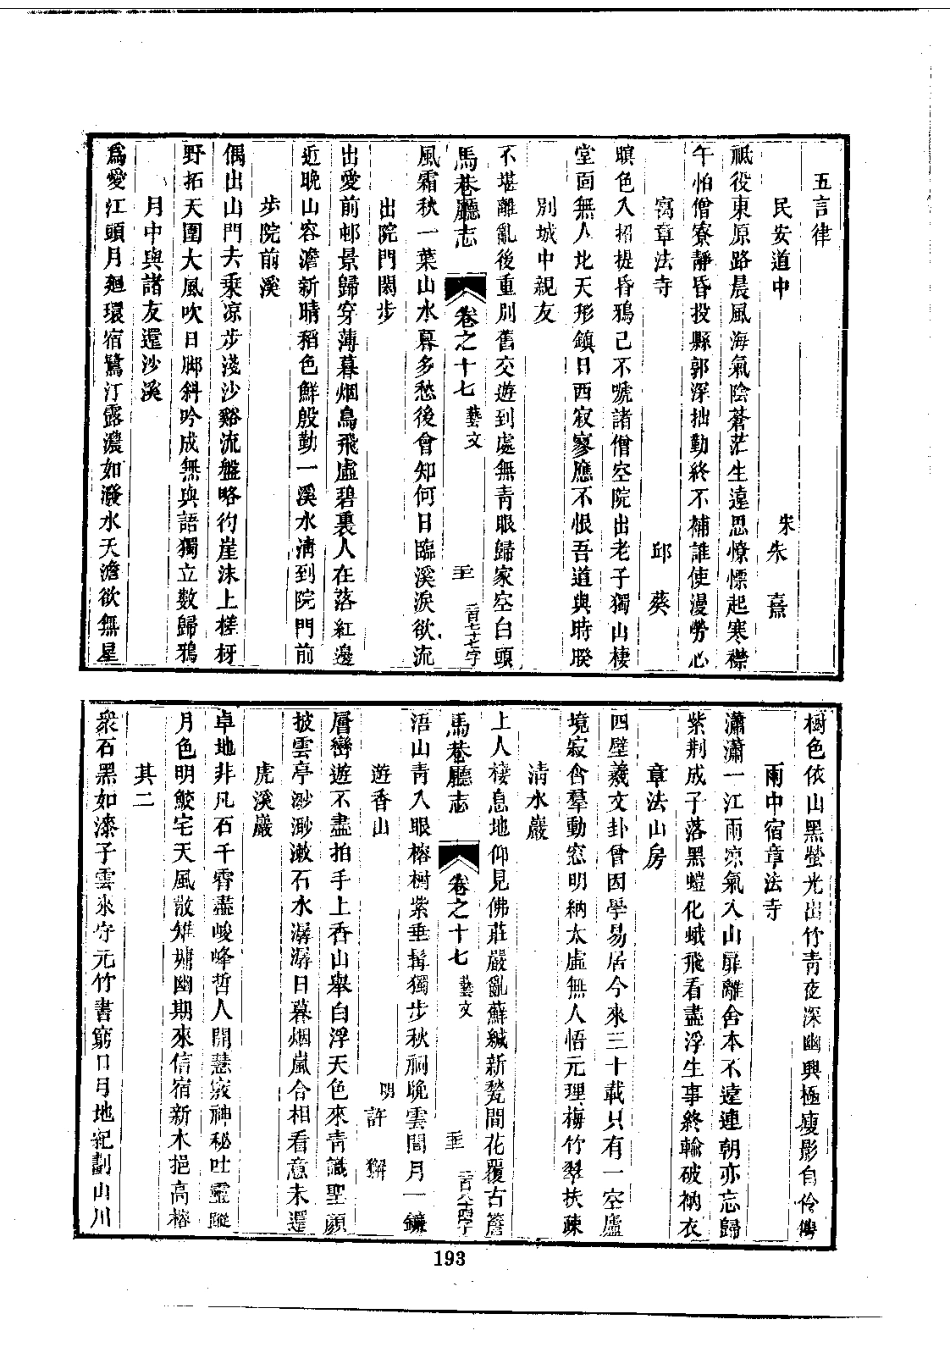 五言律
民安道中　宋朱熹
祇役東原路晨風海氣陰蒼茫生遠思憭慄起寒襟
午怕僧寮靜昏投縣郭深拙勤終不補誰使漫勞心
寓章法寺　邱葵
暝色入招提昏鴉已不嗁諸僧空院出老子獨山棲
堂面無人北天形鎮日西寂寥應不恨吾道與時睽
別城中親友
不堪離亂後重別舊交遊到處無青眼歸家空白頭
馬巷廳志　卷之十七　藝文
風霜秋一葉山水暮多愁後會知何日臨溪淚欲流
出院門閒步
出愛前邨景歸穿薄暮烟鳥飛虛碧裏人在落紅邊
近晚山容澹新晴稻色鮮殷勤一溪水清到院門前
步院前溪
偶出山門去乘凉步淺沙谿流盤略彴崖沫上槎枒
野拓天圍大風吹日腳斜吟成無與語獨立數歸鴉
月中與諸友還沙溪
爲愛江頭月廻環宿鷺汀露濃如潑水天澹欲無星
樹色依山黑螢光出竹青夜深幽興極瘦影自伶俜
雨中宿章法寺
瀟瀟一江雨凉氣入山扉離舍本不遠連朝亦忘歸
紫荆成子落黑螘化蛾飛看盡浮生事終輸破衲衣
章法山房
四壁羲文卦曾因學易居今來三十載只有一空廬
境寂含羣動窓明納太虛無人悟元理梅竹翠扶疎
清水巖
上人棲息地仰見佛莊嚴亂蘚緘新甃間花覆古簷
馬巷廳志　卷之十七　藝文
浯山青入眼榕樹紫垂髯獨步秋祠晚雲間月一鐮
遊香山　明許獬
層巒遊不盡拍手上香山擧白浮天色來青識聖顏
披雲亭渺渺漱石水潺潺日暮烟嵐合相看意未還
虎溪巖
卓地非凡石千霄盡峻峰哲人開慧竅神秘吐靈蹤
月色明鮫宅天風散雉墉幽期來信宿新木挹高榕
其二
衆石黑如漆子雲永守元竹書窮日月地紀劃山川
193